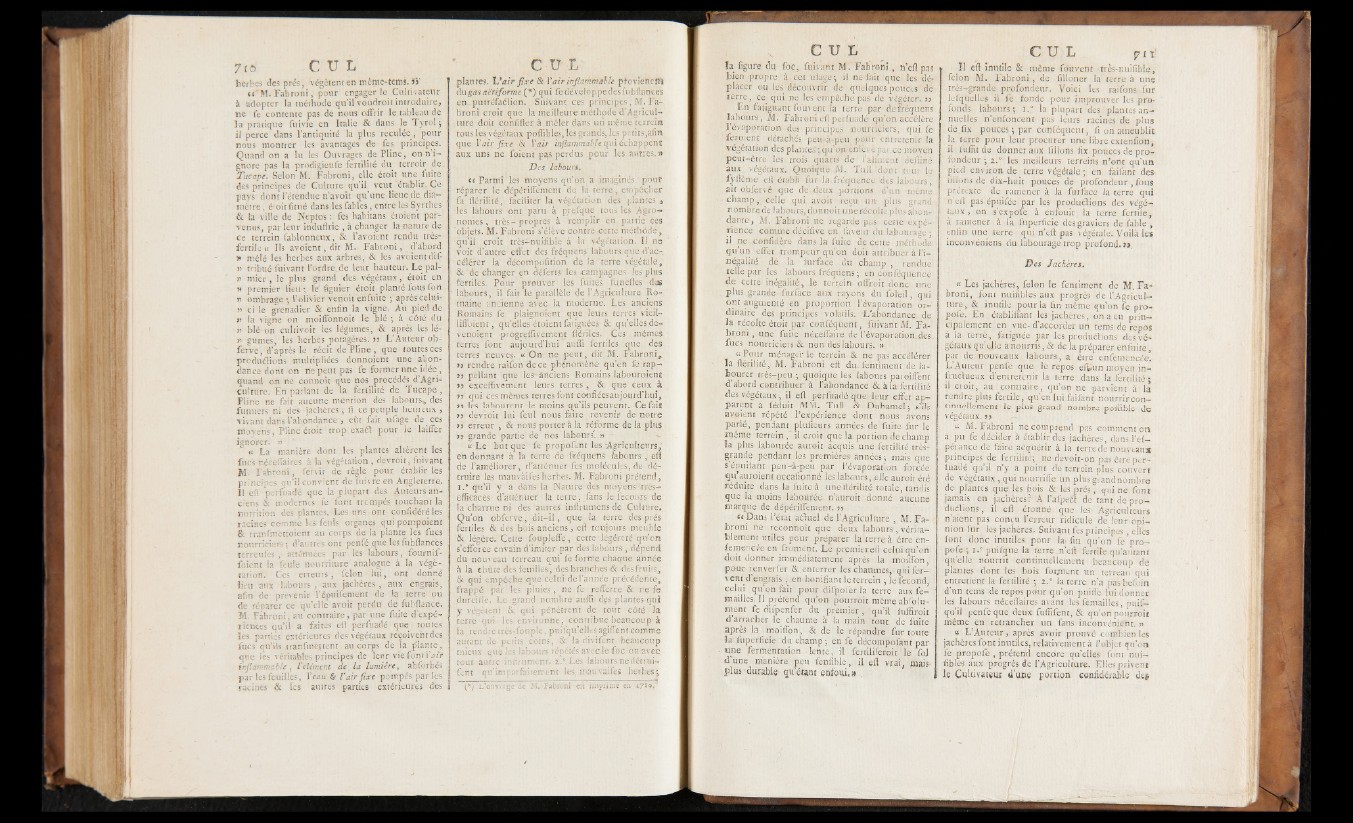 710 C U L
herbes des prés, végètent en même-tems. »
« M. Fabroni, pour engager le Cultivateur
à adopter la méthode qu'il voudroit introduire,
ne se contente pas de nous offrir le tableau de
la pratique suivie en Italie & dans le Tyrol ;
il perce dans l'antiquité la plus reculée, pour
nous montrer les avantages de ses principes.
Quand on a lu les Ouvrages de Pline, on n'i-
gnore pas la prodigieuse fertilité du terroir de
Tucape. Selon M. Fabroni, elle étoit une suite
des principes de Culture qu'il veut établir. Ce
pays dont l'étendue n'avoit qu'une lieue de dia-
mètre, étoit situé dans les sables, entre les Syrthes
& la ville de Neptos : ses habitans étoient par-
venus, par leur industrie, à changer la nature de
ce terrein sablonneux, & l'avoient rendu très-
fertile « Ils avoient, dit M. Fabroni, d'abord
» mêlé les herbes aux arbres, & les avoient dis-
» tribué suivant l'ordre de leur hauteur. Le pal-
» mier, le plus grand des végétaux, étoit en
» premier lieu ; le figuier étoit planté sous son
» ombrage ; l'olivier venoit ensuite ; après celui-
» ci le grenadier & enfin la vigne. Au pied de
» la vigne on moissonnoit le blé ; à côté du
» blé on cultivoit les légumes, & après les lé-
» gumes, les herbes potagères. » L'Auteur ob-
serve, d'après le récit de Pline, que toutes ces
productions multipliées donnoient une abon-
dance dont on ne peut pas se former une idée,
quand on ne connoît que nos procédés d'Agri-
culture. En parlant de la fertilité de Tucape,
Pline ne fait aucune mention des labours, des
fumiers ni des jachères ; si ce peuple heureux,
vivant dans l'abondance, eût fait usage de ces
moyens, Pline étoit trop exact pour le laisser
ignorer. »
« La manière dont les plantes altèrent les
sucs nécessaires à la végétation, devroit, suivant
M. Fabroni, servir de règle pour établir les
principes qu'il convient de suivre en Angleterre.
Il est persuadé que la plupart des Auteurs an-
ciens & modernes se sont trompés touchant la
nutrition des plantes. Les uns ont considéré les
racines comme les seuls organes qui pompoient
& transmettoient au corps de la plante les sucs
nourriciers ; d'autres ont pensé que les substances
terrestres, atténuées par les labours, fournis-
soient la seule nourriture analogue à la végé-
tation. Ces erreurs, selon lui, ont donné
lieu aux labours, aux jachères, aux engrais,
afin de prévenir l'épuisement de la terre ou
de réparer ce qu'elle avoit perdu de substance.
M. Fabroni, au contraire, par une suite d'expé-
riences qu'il a faites est persuadé que toutes
les parties extérieures des végétaux reçoivent des
sucs qu'ils transmettent au corps de la plante,
que les véritables principes de leur vie sont l'air
inflammable, l'élément de la lumière, absorbés
par les feuilles, l'eau & l'air fixe pompés par les
racines & les autres parties extérieures des
C U L
plantes. L'air fixe & l'air inflammable proviennent
du gas aériforme (*) qui se développe des substances
en putréfaction. Suivant ces principes, M. Fa-
broni croit que la meilleure méthode d'Agricul-
ture doit consister à mêler dans un même terrein
tous les végétaux possibles, les grands, les petits, afin
que l'air fixe & l'air inflammable qui échappent
aux uns ne soient pas perdus pour les autres. »
Des labours.
« Parmi les moyens qu'on a imaginés pour
réparer le dépérissement de la terre, empêcher
sa stérilité, faciliter la végétation des plantes,
les labours ont paru à presque tous les Agro-
nomes, très-propres à remplir en partie ces
objets. M. Fabroni s'élève contre cette méthode,
qu'il croit très-nuisible à la végétation. Il ne
voit d'autre effet des fréquens labours que d'ac-
célérer la décomposition de la terre végétale,
& de changer en déserts les campagnes les plus
fertiles. Pour prouver les suites funestes des
labours, il fait le parallèle de l'Agriculture Ro-
maine ancienne avec la moderne. Les anciens
Romains se plaignoient que leurs terres vieil-
lissoient, qu'elles étoient fatiguées & qu'elles de-
venoient progressivement stériles. Ces mêmes
terres sont aujourd'hui aussi fertiles que des
terres neuves. « On ne peut, dit M. Fabroni,
» rendre raison de ce phénomène qu'en se rap-
» pellant que les anciens Romains labouroient
» excessivement leurs terres, & que ceux à
» qui ces mêmes terres sont confiées aujourd'hui,
» les labourent le moins qu'ils peuvent. Ce fait
» devroit lui seul nous faire revenir de notre
» erreur, & nous porter à la réforme de la plus
» grande partie de nos labours. »
« Le but que se proposent les Agriculteurs,
en donnant à la terre de fréquens labours, est
de l'améliorer, d'atténuer ses molécules, de dé-
truire les mauvaises herbes. M. Fabroni prétend,
1.° qu'il y a dans la Nature des moyens très-
efficaces d'atténuer la terre, sans le secours de
la charrue ni des autres instrumens de Culture.
Qu'on observe, dit-il, que la terre des prés
fertiles & des bois anciens, est toujours meuble
& légère. Cette souplesse, cette légèreté qu'on
s'efforce envain d'imiter par des labours, dépend
du nouveau terreau qui se forme chaque année
à la chûte des feuilles, des branches & des fruits,
& qui empêche que celui de l'année précédente,
frappé par les pluies, ne se resserre & ne se
durcisse. Le grand nombre aussi des plantes qui
y végètent & qui pénètrent de tout côté la
terre qui les environne, contribue beaucoup à
la rendre très-souple, puisqu'elles agissent comme
autant de petits coins, & la divisent beaucoup
mieux que les labours répétés avec le soc ou avec
tout autre instrument. 2.° Les labours ne détrui-
sent qu'imparfaitement les mauvaises herbes ;
(*) L'ouvrage de M. Fabroni est imprimé en 1780.
C U L
la figure du soc, suivant M. Fabroni, n'est pas
bien propre à cet usage ; il ne fait que les dé-
placer ou les découvrir de quelques pouces de
terre, ce qui ne les empêche pas de végéter. »
En fatiguant souvent la terre par de fréquens
labours, M. Fabroni est persuadé qu'on accélère
l'évaporation des principes nourriciers, qui se
seroient détachés peu-à-peu pour entretenir la
végétation des plantes ; qu'on enlève par ce moyen
peut-être les trois quarts de l'aliment destiné
aux végétaux. Quoique M. Tull dont tout le
système est établi sur la fréquence des labours,
ait observé que de deux portions d'un même
champ, celle qui avoit reçu un plus grand
nombre de labours, donnoit une récolte plus abon-
dante, M. Fabroni ne regarde pas cette expé-
rience comme décisive en faveur du labourage ;
il ne considère dans la suite de cette méthode
qu'un effet trompeur qu'on doit attribuer à l'i-
négalité de la surface du champ, rendue
telle par les labours fréquens ; en conséquence
de cette inégalité, le terrein offrait donc une
plus grande surface aux rayons du soleil, qui
ont augmenté en proportion l'évaporation or-
dinaire des principes volatils. L'abondance de
la récolte étoit par conséquent, suivant M. Fa-
broni, une suite nécessaire de l'évaporation des
sucs nourriciers & non des labours. »
« Pour ménager le terrein & ne pas accélérer
la stérilité, M. Fabroni est du sentiment de la-
bourer très-peu ; quoique les labours paroissent
d'abord contribuer à l'abondance & à la fertilité
des végétaux, il est persuadé que leur effet ap-
parent a séduit MM. Tull & Duhamel ; s'ils
avoient répété l'expérience dont nous avons
parlé, pendant plusieurs années de suite sur le
même terrein, il croit que la portion de champ
la plus labourée auroit acquis une fertilité très-
grande pendant les premières années ; mais que
s'épuisant peu-à-peu par l'évaporation forcée
qu'auroient occasionné les labours, elle auroit été
réduite dans la suite à une stérilité totale, tandis
que la moins labourée n'auroit donné aucune
marque de dépérissement. »
« Dans l'état actuel de l'Agriculture, M. Fa-
broni ne reconnoît que deux labours, vérita-
blement utiles pour préparer la terre à être en-
semencée en froment. Le premier est celui qu'on
doit donner immédiatement après la moisson,
pour renverser & enterrer les chaumes, qui ser-
vent d'engrais, en bonifiant le terrein ; le second,
celui qu'on fait pour disposer la terre aux se-
mailles. Il prétend qu'on pourroit même absolu-
ment se dispenser du premier, qu'il suffiroit
d'arracher le chaume à la main tout de suite
après la moisson, & de le répandre sur toute
la superficie du champ ; en se décomposant par
une fermentation lente, il fertiliseroit le sol
d'une manière peu sensible, il est vrai, mais
plus durable qu'étant enfoui. »
C U L 711
Il est inutile & même souvent très-nuisible,
selon M. Fabroni, de sillonner la terre à une
très-grande profondeur. Voici les raisons sur
lesquelles il se fonde pour improuver les pro-
fonds labours ; 1.° la plupart des plantes an-
nuelles n'enfoncent pas leurs racines de plus
de six pouces ; par conséquent, si on ameublit
la terre pour leur procurer une libre extension,
il suffit de donner aux sillons six pouces de pro-
fondeur ; 2.° les meilleurs terreins n'ont qu'un
pied environ de terre végétale ; en faisant des
sillons de dix-huit pouces de profondeur, sous
prétexte de ramener à la surface la terre qui
n'est pas épuisée par les productions des végé-
taux, on s'expose à enfouir la terre fertile,
à ramener à la superficie des graviers de sable,
enfin une terre qui n'est pas végétale. Voilà les
inconvéniens du labourage trop profond. »
Des Jachères.
« Les jachères, selon le sentiment de M. Fa-
broni, sont nuisibles aux progrès de l'Agricul-
ture, & inutile pour la fin même qu'on se pro-
pose. En établissant les jachères, on a eu prin-
cipalement en vue d'accorder un tems de repos
à la terre, fatiguée par les productions des vé-
gétaux qu'elle a nourris, & de la préparer ensuite,
par de nouveaux labours, à être ensemencée.
L'Auteur pense que le repos est un moyen in-
fructueux d'entretenir la terre dans la fertilité ;
il croit, au contraire, qu'on ne parvient à la
rendre plus fertile, qu'en lui faisant nourrir con-
tinuellement le plus grand nombre possible de
végétaux. »
« M. Fabroni ne comprend pas comment on
a pu se décider à établir des jachères, dans l'es-
pérance de faire acquérir à la terre de nouveaux
principes de fertilité ; ne devoit-on pas être per-
suadé qu'il n'y a point de terrein plus couvert
de végétaux, qui nourrisse un plus grand nombre
de plantes que les bois & les prés, qui ne sont
jamais en jachères ? A l'aspect de tant de pro-
ductions, il est étonné que les Agriculteurs
n'aient pas connu l'erreur ridicule de leur opi-
nion sur les jachères. Suivant ses principes, elles
sont donc inutiles pour la fin qu'on se pro-
pose ; 1.° puisque la terre n'est fertile qu'autant
qu'elle nourrit continuellement beaucoup de
plantes dont les bois forment un terreau qui
entretient la fertilité ; 2.° la terre n'a pas besoin
d'un tems de repos pour qu'on puisse lui donner
les labours nécessaires avant les semailles, puis-
qu'il pense que deux suffisent, & qu'on pourroit
même en retrancher un sans inconvénient. »
« L'Auteur, après avoir prouvé combien les
jachères sont inutiles, relativement à l'objet qu'on
se propose, prétend encore qu'elles sont nui-
sibles aux progrès de l'Agriculture. Elles privent
le Cultivateur d'une portion considérable des